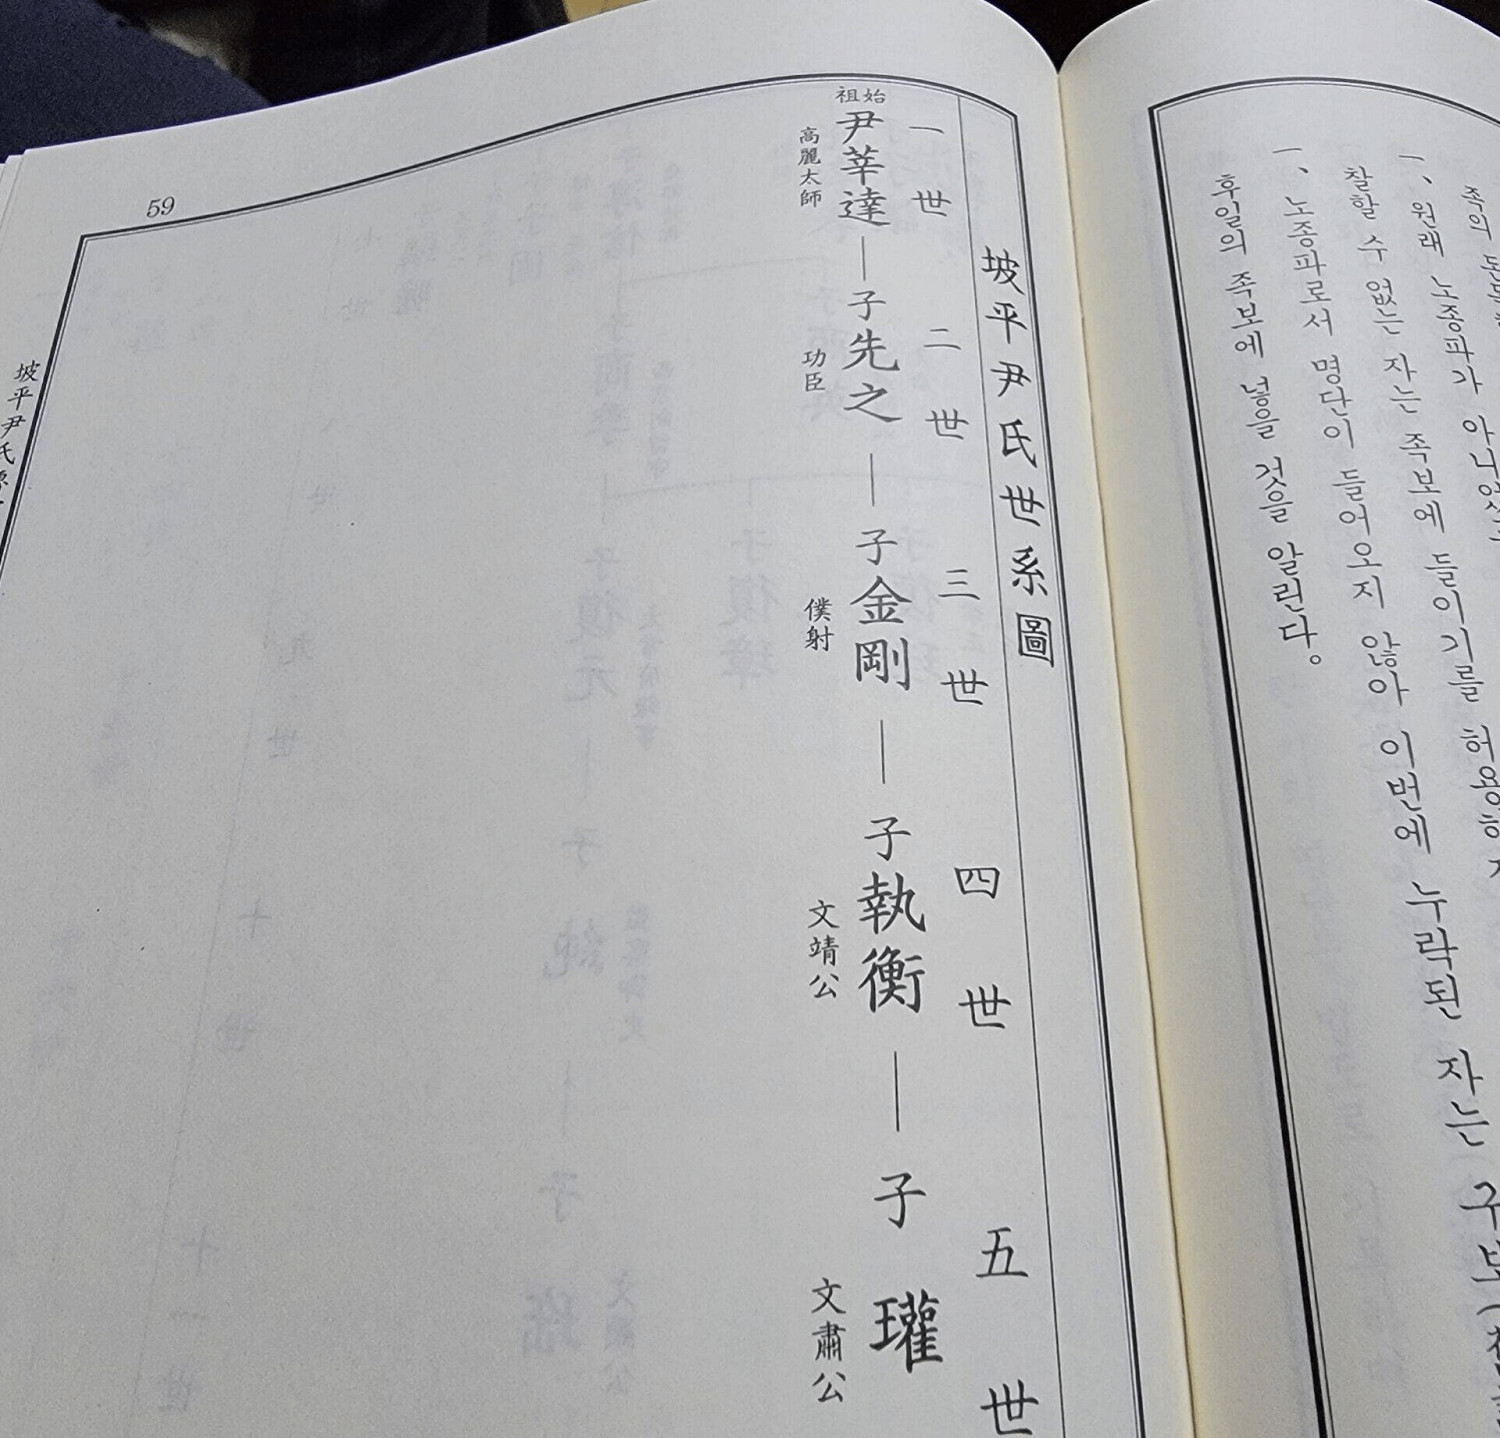 족의
一、원래 노종파가 아니었
찰할 수 없는 자는 족보에 들이기를 허용하
一、노종파로서 명단이 들어오지 않아 이번에 누락된 자는 구보(
후일의 족보에 넣을 것을 알린다。
坡平尹氏世系圖
一世 二世 三世 四世 五世
始祖
尹莘達 — 子 先之 — 子 金剛 — 子 執衡 — 子 瓘
高麗太師 功臣 僕射 文靖公 文肅公
59
坡平尹氏